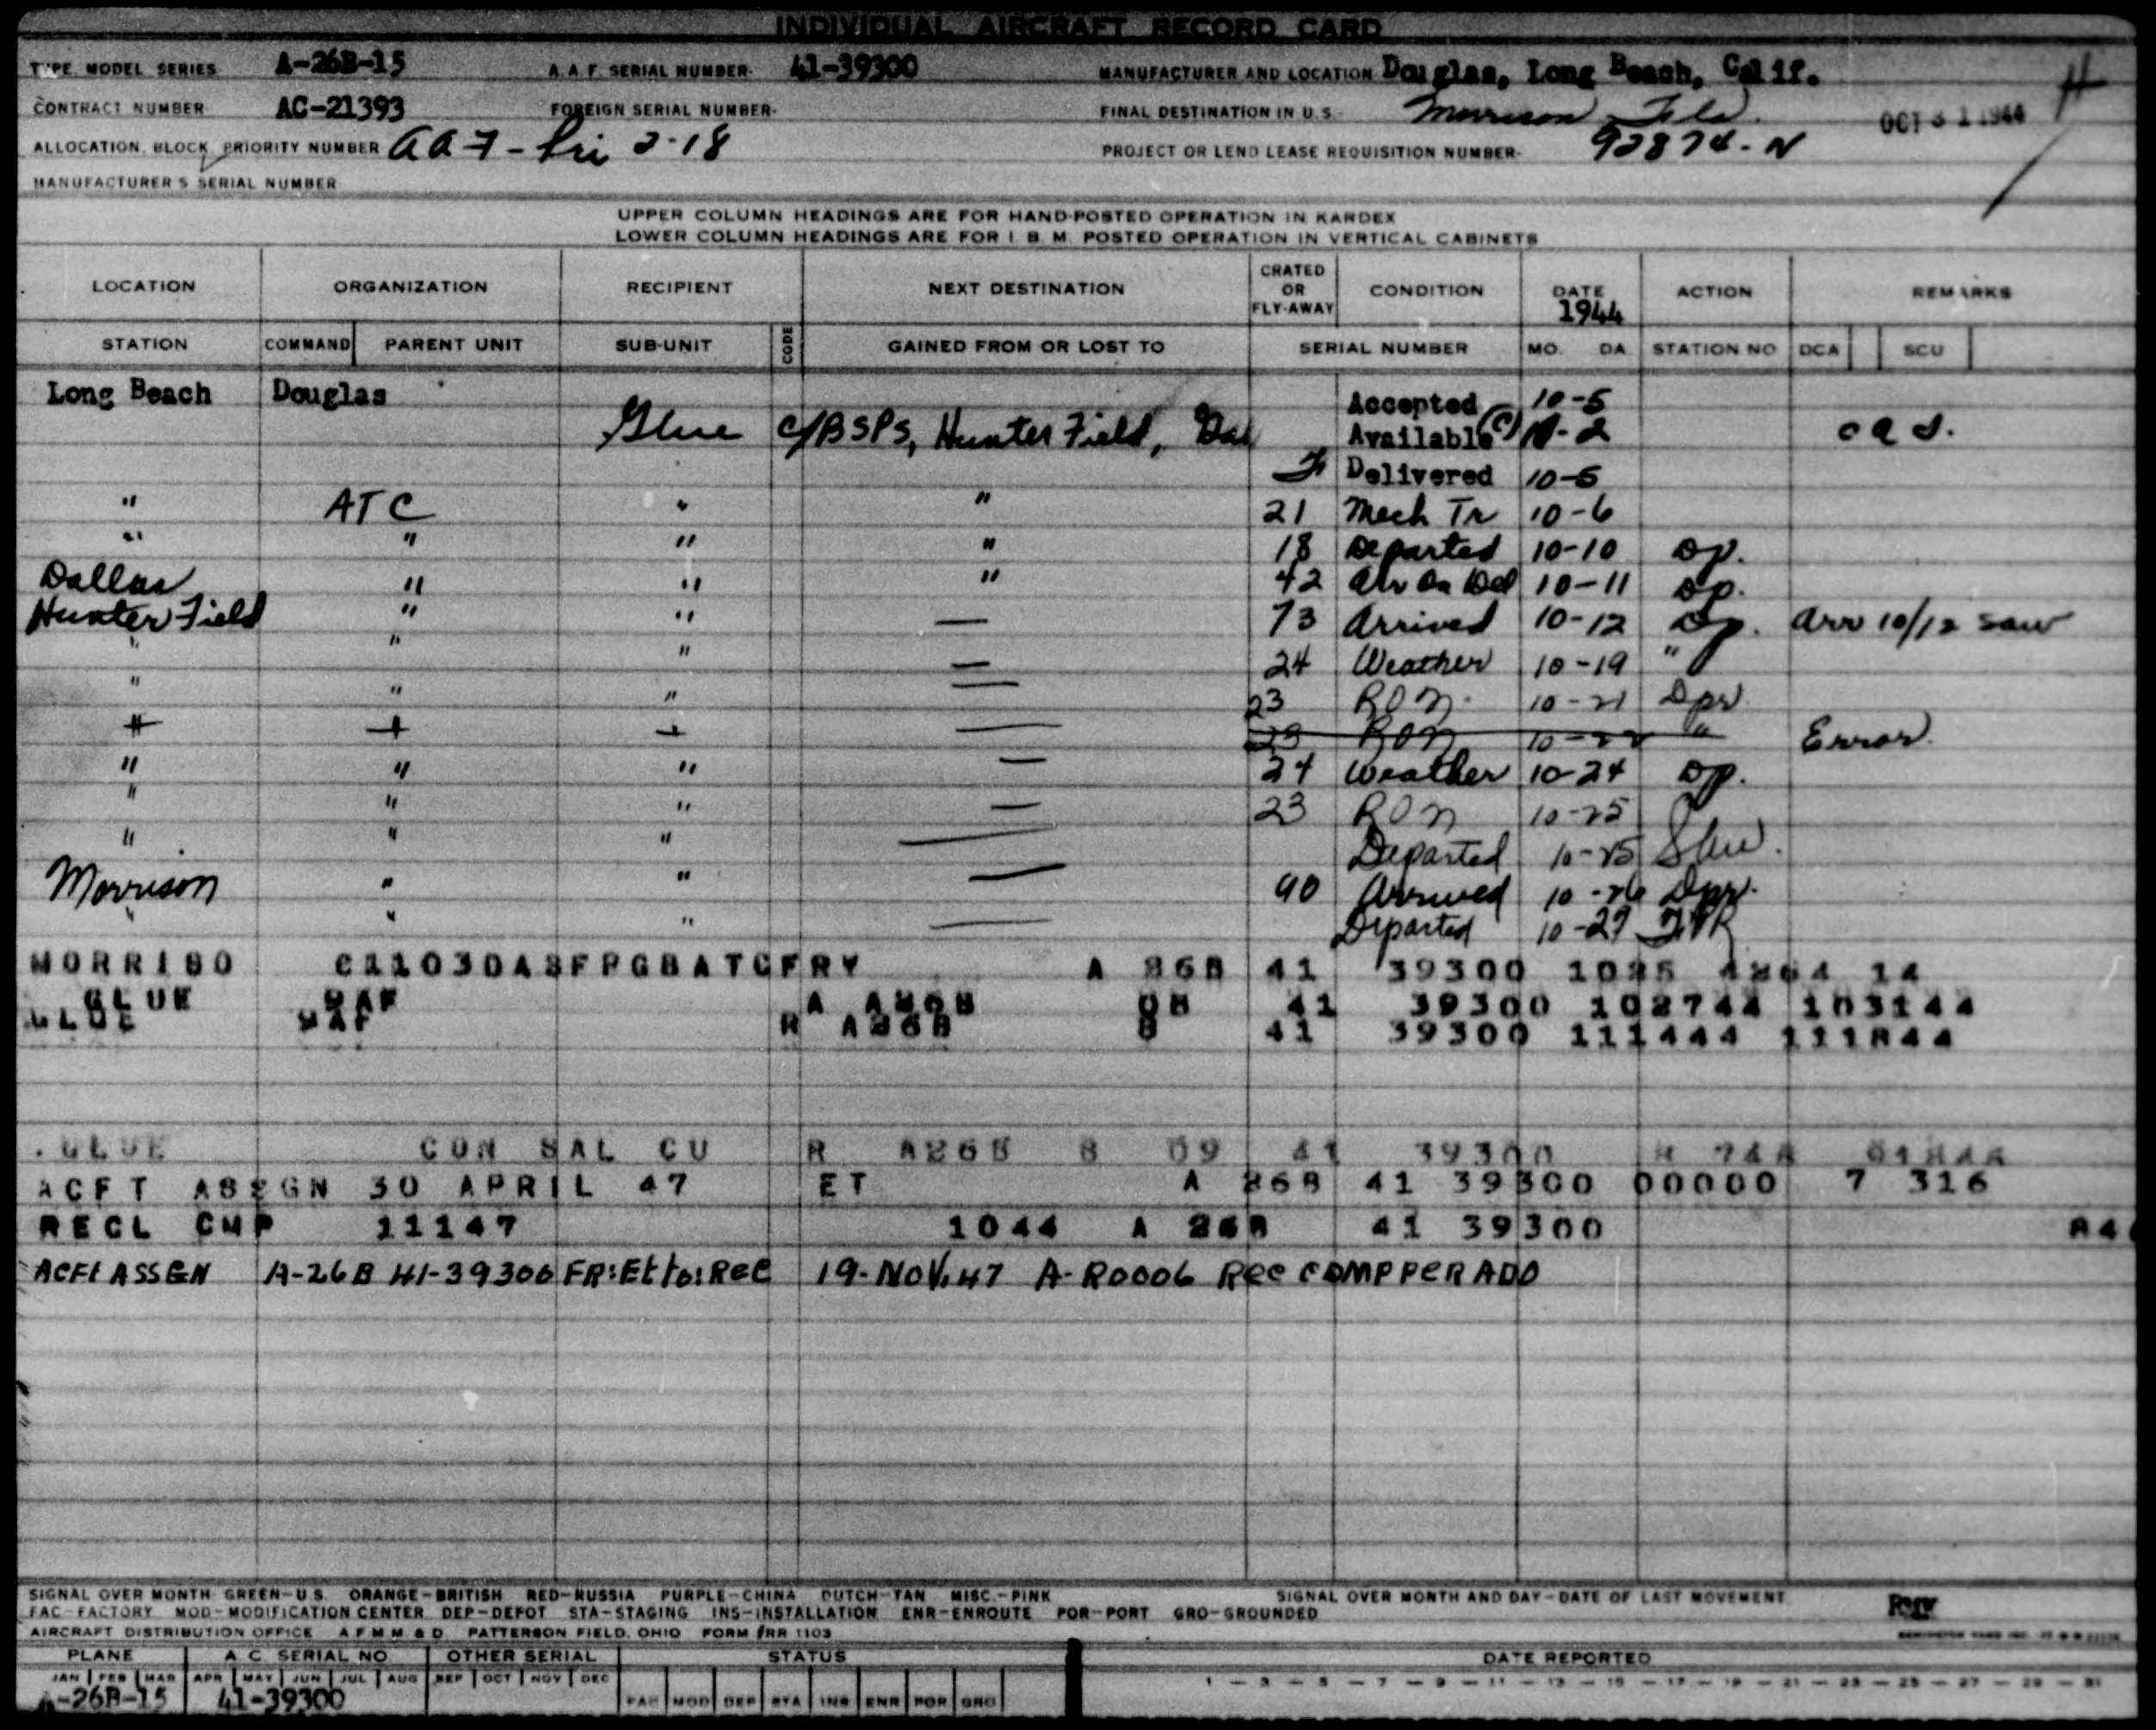 INDIVIDUAL AIRCRAFT RECORD CARD
TYPE MODEL SERIES A-26B-15 A.A.F. SERIAL NUMBER- 41-39300 MANUFACTURER AND LOCATION Douglas, Long Beach, Calif.
CONTRACT NUMBER AC-21393 FOREIGN SERIAL NUMBER- FINAL DESTINATION IN U.S. Morrison Fla. OCT 31 1944
ALLOCATION, BLOCK, PRIORITY NUMBER AA7- Pri 2-18 PROJECT OR LEND LEASE REQUISITION NUMBER- 92874-N
MANUFACTURER'S SERIAL NUMBER
UPPER COLUMN HEADINGS ARE FOR HAND-POSTED OPERATION IN KARDEX
LOWER COLUMN HEADINGS ARE FOR I. B. M. POSTED OPERATION IN VERTICAL CABINETS
LOCATION ORGANIZATION RECIPIENT NEXT DESTINATION CRATED OR FLY-AWAY CONDITION DATE 1944 ACTION REMARKS
STATION COMMAND PARENT UNIT SUB-UNIT CODE GAINED FROM OR LOST TO SERIAL NUMBER MO. DA. STATION NO DCA SCU
Long Beach Douglas Accepted 10-5
Glue C/BSPS, Hunter Field, Ga Available (C) -2 OAD.
F Delivered 10-5
" ATC " " 21 Mech Tr 10-6
" " " " 18 Departed 10-10 Dp.
Dallas " " " 42 Arr On Del 10-11 Dp.
Hunter Field " " — 73 Arrived 10-12 Dp. Arr 10/12 Saw
" " " — 24 Weather 10-19 "
" " " — 23 RON 10-21 Dpr
" " " — 23 RON 10-22 " Error.
" " " — 24 Weather 10-24 Dp.
" " " — 23 RON 10-25
" " " — Departed 10-25
Morrison " " — 90 Arrived 10-26 Dpr.
" " " — Departed 10-27
MORRISO C11030ASFPGBATCFRY A 26B 41 39300 1025 4264 14
GLUE A A26B 41 39300 102744 103144
GLUE R A26B 8 41 39300 111444 111844
GLUE CON SAL CU R A26B 8 09 41 39300
ACFT ASSGN 30 APRIL 47 ET A 26B 41 39300 00000 7 316
RECL CMP 11147 1044 A 26B 41 39300
ACFT ASSGN A-26B 41-39300 FR:Et to:Rec 19-NOV.47 A-R0006 Rec COMP PER ADO
SIGNAL OVER MONTH GREEN-U.S. ORANGE-BRITISH RED-RUSSIA PURPLE-CHINA DUTCH-TAN MISC.-PINK SIGNAL OVER MONTH AND DAY-DATE OF LAST MOVEMENT
FAC-FACTORY MOD-MODIFICATION CENTER DEP-DEPOT STA-STAGING INS-INSTALLATION ENR-ENROUTE POR-PORT GRO-GROUNDED
AIRCRAFT DISTRIBUTION OFFICE A.F.M.M. & D. PATTERSON FIELD, OHIO FORM #RR 1103
PLANE A C SERIAL NO. OTHER SERIAL STATUS DATE REPORTED
JAN FEB MAR APR MAY JUN JUL AUG SEP OCT NOV DEC
A-26B-15 41-39300 FAC MOD DEP STA INS ENR POR GRO 1 - 3 - 5 - 7 - 9 - 11 - 13 - 15 - 17 - 19 - 21 - 23 - 25 - 27 - 29 - 31